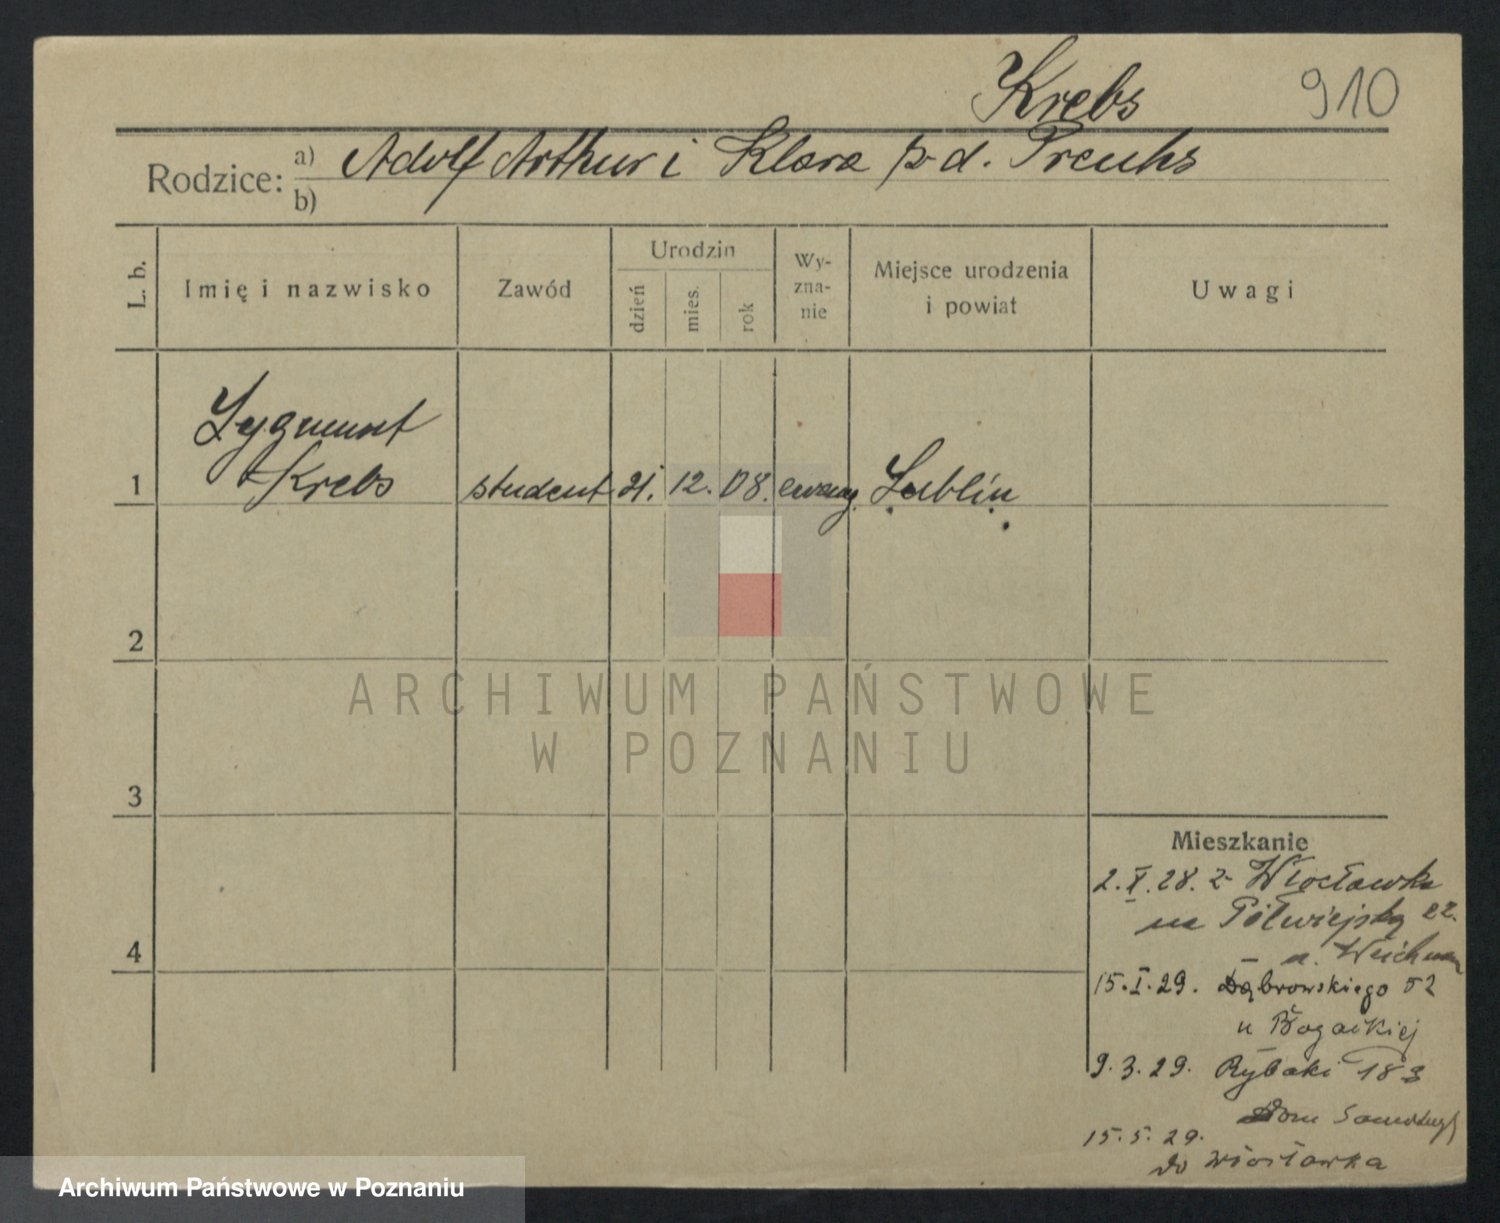 Krebs 910
Rodzice: a) Adolf Arthur i Klara p. d. Preuhs
b)
L. b. Imię i nazwisko Zawód Urodzin dzień mies. rok Wy-zna-nie Miejsce urodzenia i powiat Uwagi
Zygmunt
1 Krebs student 21. 12. 08. ewang. Lublin
2
ARCHIWUM PAŃSTWOWE
W POZNANIU
3
Mieszkanie
2. X. 28. z Włocławka
na Półwiejską
4 u. Weichman
15. I. 29. Dąbrowskiego 52
u
9. 3. 29. Rybaki
Dom
15. 5. 29.
do Włocławka
Archiwum Państwowe w Poznaniu